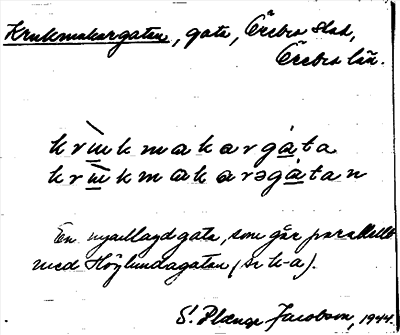 Krukmakargatan, gata, Örebro stad,
Örebro län.
krùkmakargáta
krùkmakarəgátan
En nyanlagd gata, som går parallellt
med Höglundagatan (se k-a).
S. Plænge Jacobson, 1944.